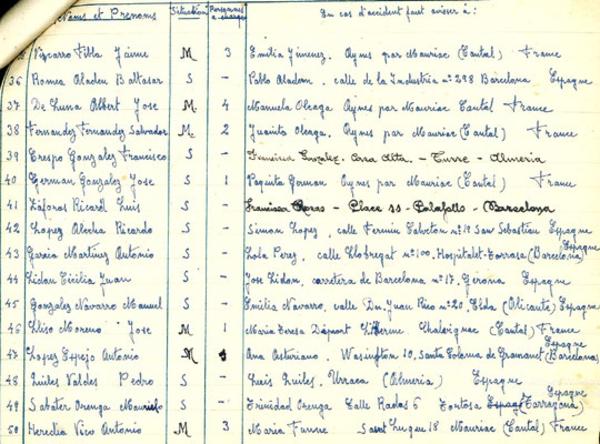 Noms et Prenoms Situation Personnes a charge En cas d'accident faut aviser à:
Viscarro Villa Jaime M 3 Emilia Jimenez. Ayns par Mauriac (Cantal) France
36 Romea Aladen Baltasar S - Pablo Aladern, calle de la Industria nº 298 Barcelona Espagne
37 De Luna Albert Jose M. 4 Manuela Oleaga Ayns par Mauriac Cantal France
38 Fernandez Fernandez Salvador M. 2 Juanita Oleaga. Ayns par Mauriac (Cantal) France
39 Crespo Gonzalez Francisco S - Francisca Gonzalez. Casa Alta. - Turre - Almeria
40 German Gonzalez Jose S 1 Paquita German Ayns par Mauriac (Cantal) France
41 Záforas Ricard Luis S - Francisca - Place 11 - Palafolls - Barcelona
42 Lopez Alecha Ricardo S - Simon Lopez, calle Fermin Calveton nº 19 San Sebastien Espagne
43 Garcia Martinez Antonio S - Lola Perez, calle Llobregat nº 100. Hospitalet-Torrase (Barcelona) Espagne
44 Lidon Cicilia Juan S - Jose Lidon, carretera de Barcelona nº 17. Gerona Espagne
45 Gonzalez Navarro Manuel S - Emilia Navarro, calle Dn. Juan Rico nº 20. Elda (Alicante) Espagne
46 Lliso Moreno Jose M 1 Maria Teresa Chaleignac (Cantal) France
47 Lopez Espejo Antonio M Ana Asturiano. Wasington 10, Santa Coloma de Gramanet (Barcelona) Espagne
48 Quiles Valdes Pedro S - Luis Quiles. Urraca (Almeria) Espagne
49 Sabater Orenga Mauricio S - Trinidad Orenga Calle Rados 6 Tortosa (Tarragona) Espagne
50 Heredia Vico Antonio M 3 Maria 18 Mauriac (Cantal) France